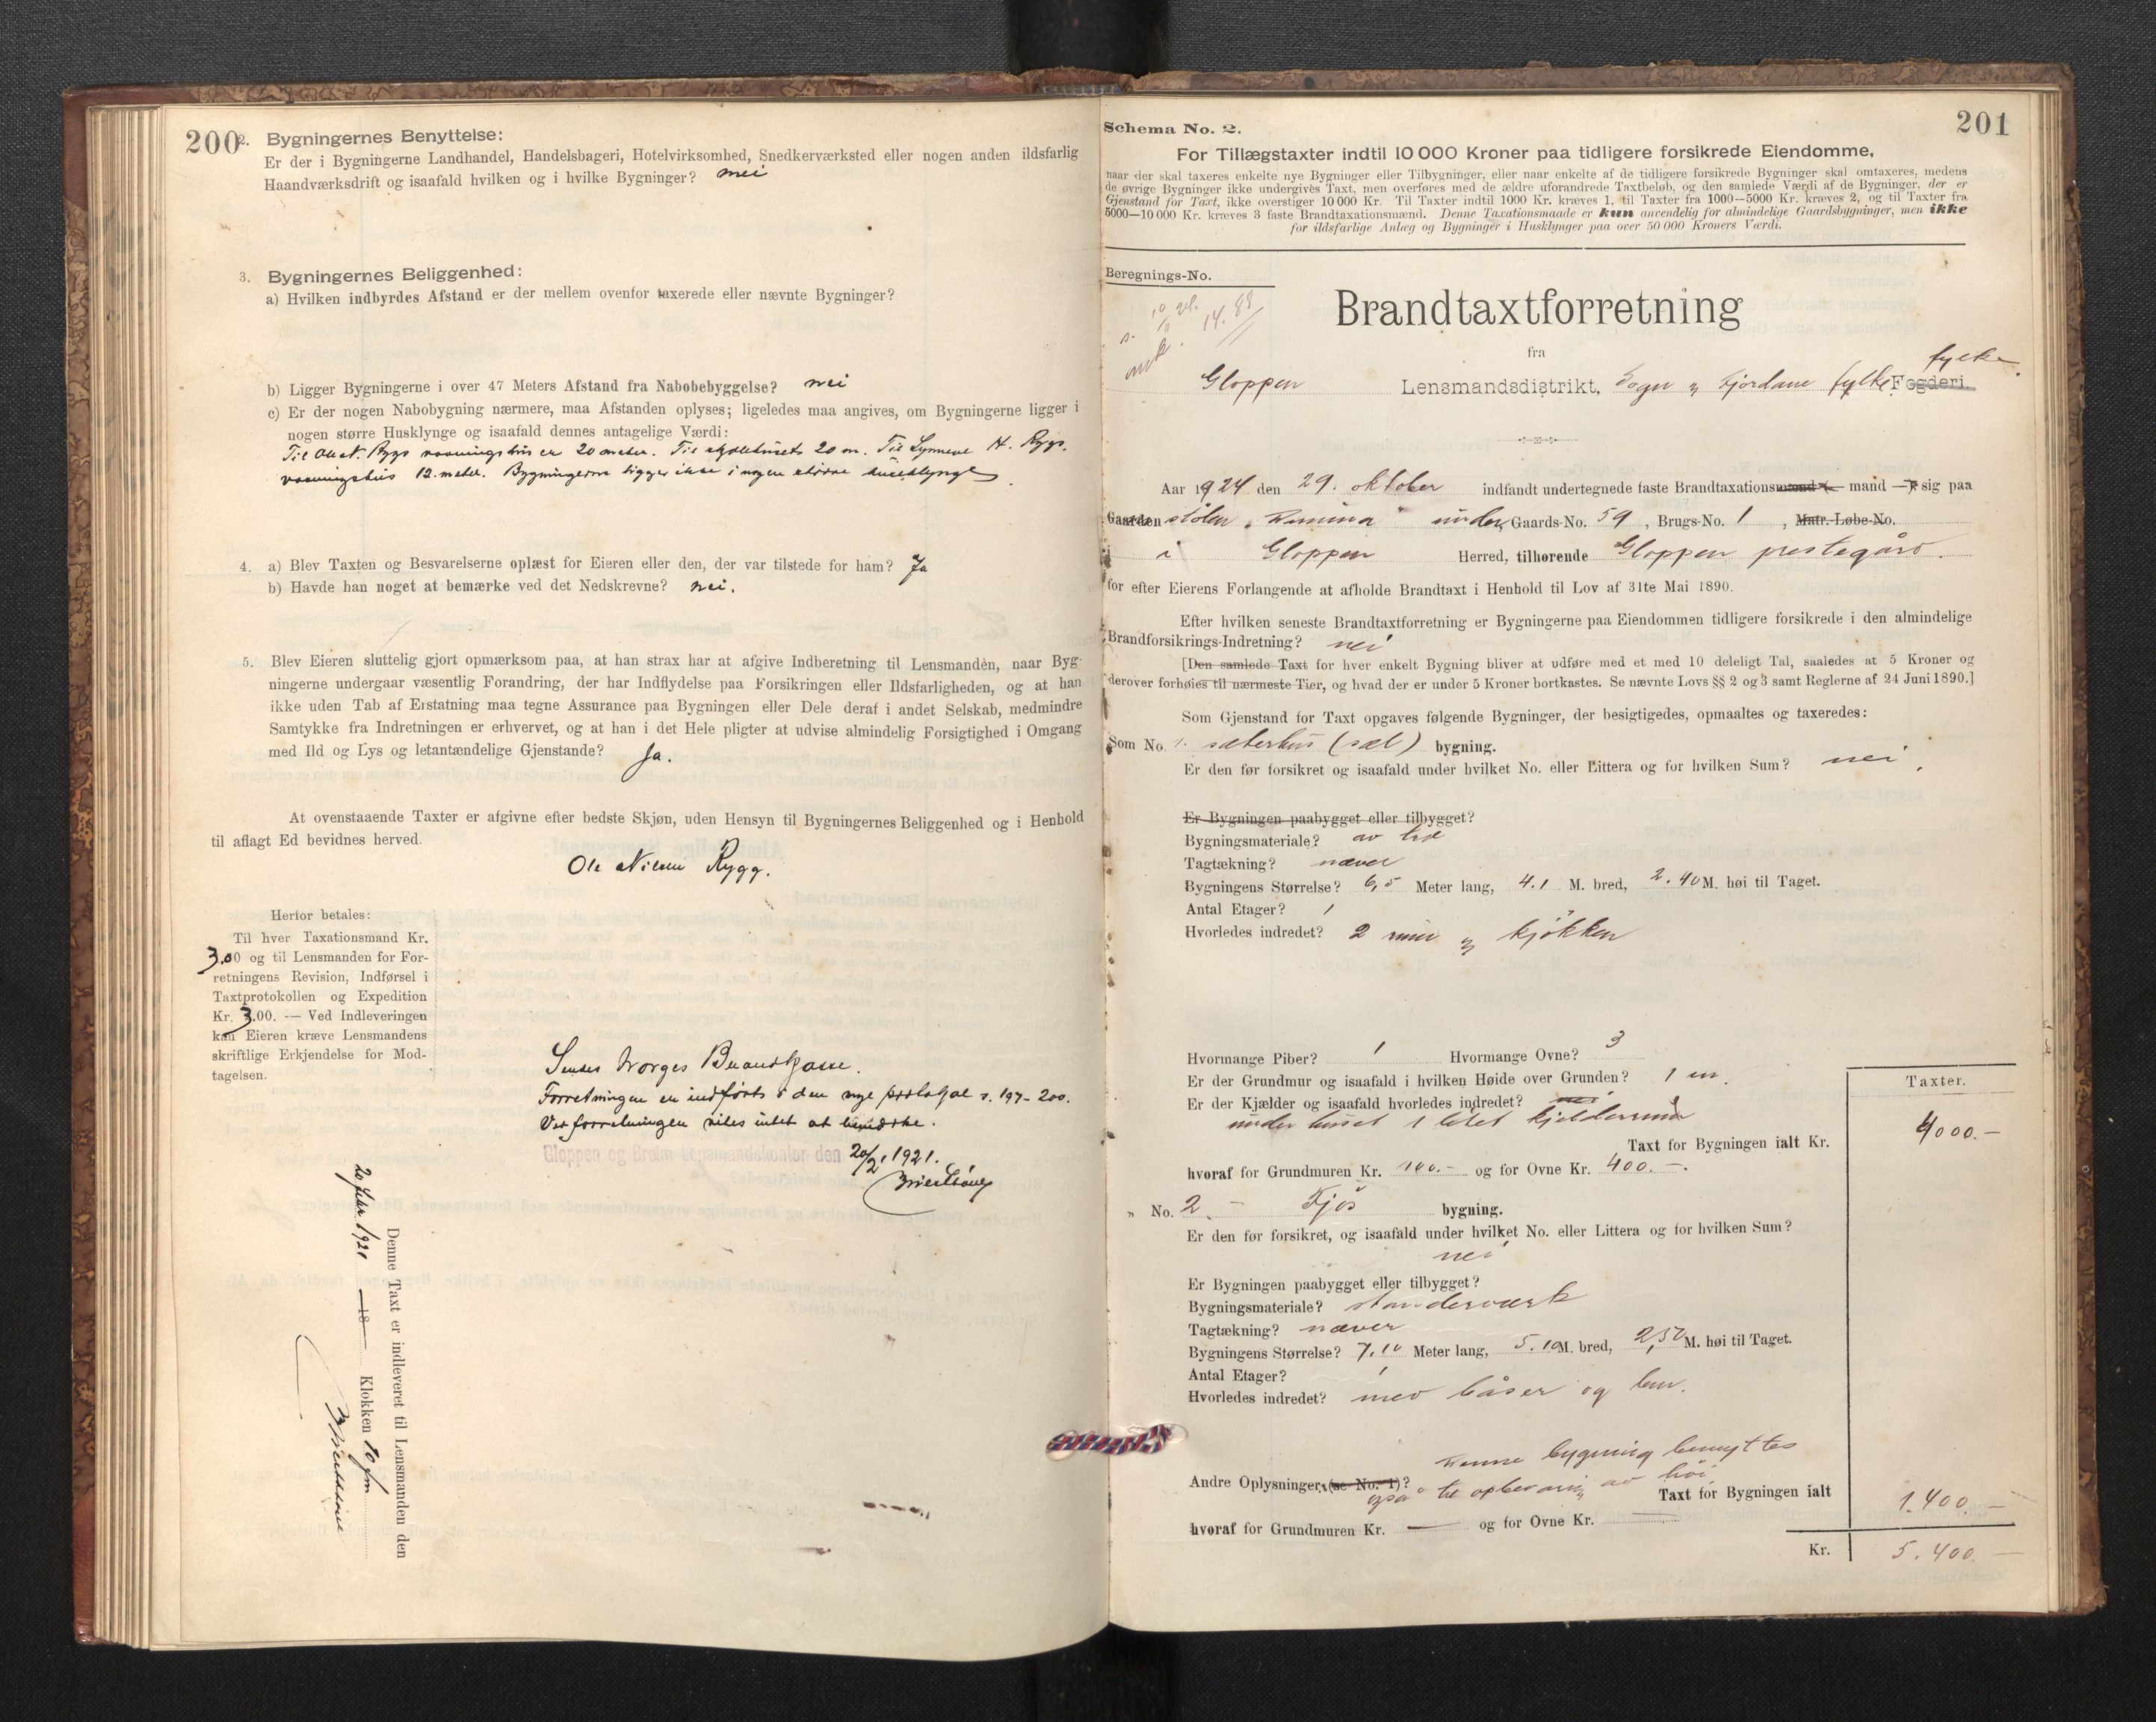 200
2. Bygningernes Benyttelse:
Er der i Bygningerne Landhandel, Handelsbageri, Hotelvirksomhed, Snedkerværksted eller nogen anden ildsfarlig
Haandværksdrift og isaafald hvilken og i hvilke Bygninger? nei
3. Bygningernes Beliggenhed:
a) Hvilken indbyrdes Afstand er der mellem ovenfor taxerede eller nævnte Bygninger?
b) Ligger Bygningerne i over 47 Meters Afstand fra Nabobebyggelse? nei
c) Er der nogen Nabobygning nærmere, maa Afstanden oplyses; ligeledes maa angives, om Bygningerne ligger i
nogen større Husklynge og isaafald dennes antagelige Værdi:
Til Ole N. Ryggs vaaningshus er 20 meter. Til skolehusets 20 m. Til Synneve H. Ryggs
vaaningshus 12 meter. Bygningerne ligger ikke i nogen større husklynge.
4. a) Blev Taxten og Besvarelserne oplæst for Eieren eller den, der var tilstede for ham? Ja
b) Havde han noget at bemærke ved det Nedskrevne? nei.
5. Blev Eieren sluttelig gjort opmærksom paa, at han strax har at afgive Indberetning til Lensmanden, naar Byg-
ningerne undergaar væsentlig Forandring, der har Indflydelse paa Forsikringen eller Ildsfarligheden, og at han
ikke uden Tab af Erstatning maa tegne Assurance paa Bygningen eller Dele deraf i andet Selskab, medmindre
Samtykke fra Indretningen er erhvervet, og at han i det Hele pligter at udvise almindelig Forsigtighed i Omgang
med Ild og Lys og letantændelige Gjenstande? Ja.
At ovenstaaende Taxter er afgivne efter bedste Skjøn, uden Hensyn til Bygningernes Beliggenhed og i Henhold
til aflagt Ed bevidnes herved.
Ole Nilsen Rygg.
Herfor betales:
Til hver Taxationsmand Kr.
3.00 og til Lensmanden for For-
retningens Revision, Indførsel i
Taxtprotokollen og Expedition
Kr. 3.00. — Ved Indleveringen
kan Eieren kræve Lensmandens
skriftlige Erkjendelse for Mod-
tagelsen.
Sendes Norges Brandkasse.
Forretningen er indført i den nye protokol s. 197-200.
Ved forretningen vites intet at bemerke.
Gloppen og Breim Lensmandskontor den 20/2 1921.
Denne Taxt er indleveret til Lensmanden den
20 febr 1921 18 Klokken 10 fm
201
Schema No. 2.
For Tillægstaxter indtil 10 000 Kroner paa tidligere forsikrede Eiendomme,
naar der skal taxeres enkelte nye Bygninger eller Tilbygninger, eller naar enkelte af de tidligere forsikrede Bygninger skal omtaxeres, medens
de øvrige Bygninger ikke undergives Taxt, men overføres med de ældre uforandrede Taxtbeløb, og den samlede Værdi af de Bygninger, der er
Gjenstand for Taxt, ikke overstiger 10 000 Kr. Til Taxter indtil 1000 Kr. kræves 1, til Taxter fra 1000—5000 Kr. kræves 2, og til Taxter fra
5000—10 000 Kr. kræves 3 faste Brandtaxationsmænd. Denne Taxationsmaade er kun anvendelig for almindelige Gaardsbygninger, men ikke
for ildsfarlige Anlæg og Bygninger i Husklynger paa over 50 000 Kroners Værdi.
Beregnings-No.
14.88
Brandtaxtforretning
fra
fylke
Gloppen Lensmandsdistrikt, Sogn og Fjordane fylke Fogderi.
Aar 1924 den 29. oktober indfandt undertegnede faste Brandtaxationsmænd mand sig paa
Gaarden stølen under Gaards-No. 59, Brugs-No. 1, Matr.-Løbe-No.
i Gloppen Herred, tilhørende Gloppen prestegård.
for efter Eierens Forlangende at afholde Brandtaxt i Henhold til Lov af 31te Mai 1890.
Efter hvilken seneste Brandtaxtforretning er Bygningerne paa Eiendommen tidligere forsikrede i den almindelige
Brandforsikrings-Indretning? nei
[Den samlede Taxt for hver enkelt Bygning bliver at udføre med et med 10 deleligt Tal, saaledes at 5 Kroner og
derover forhøies til nærmeste Tier, og hvad der er under 5 Kroner bortkastes. Se nævnte Lovs §§ 2 og 3 samt Reglerne af 24 Juni 1890.]
Som Gjenstand for Taxt opgaves følgende Bygninger, der besigtigedes, opmaaltes og taxeredes:
Som No. 1. sæterhus (sæl) bygning.
Er den før forsikret og isaafald under hvilket No. eller Littera og for hvilken Sum? nei.
Er Bygningen paabygget eller tilbygget?
Bygningsmateriale? av tre
Tagtækning? næver
Bygningens Størrelse? 6,5 Meter lang, 4.1 M. bred, 2.40 M. høi til Taget.
Antal Etager? 1
Hvorledes indredet? 2 rum og kjøkken
Hvormange Piber? 1 Hvormange Ovne? 3
Er der Grundmur og isaafald i hvilken Høide over Grunden? 1 m.
Taxter.
Er der Kjælder og isaafald hvorledes indredet? nei
under huset 1 litet kjelderrum
Taxt for Bygningen ialt Kr. 4000.—
hvoraf for Grundmuren Kr. 100.— og for Ovne Kr. 400.—.
" No. 2. — Fjøs bygning.
Er den før forsikret, og isaafald under hvilket No. eller Littera og for hvilken Sum?
nei
Er Bygningen paabygget eller tilbygget?
Bygningsmateriale? standerværk
Tagtækning? næver
Bygningens Størrelse? 7.10 Meter lang, 5.10 M. bred, 2,50 M. høi til Taget.
Antal Etager? 1
Hvorledes indredet? med båser og lem.
Denne bygning benyttes
Andre Oplysninger (se No. 1)? også til opbevaring av høi
Taxt for Bygningen ialt 1.400.—
hvoraf for Grundmuren Kr. — og for Ovne Kr. —
Kr. 5.400.—